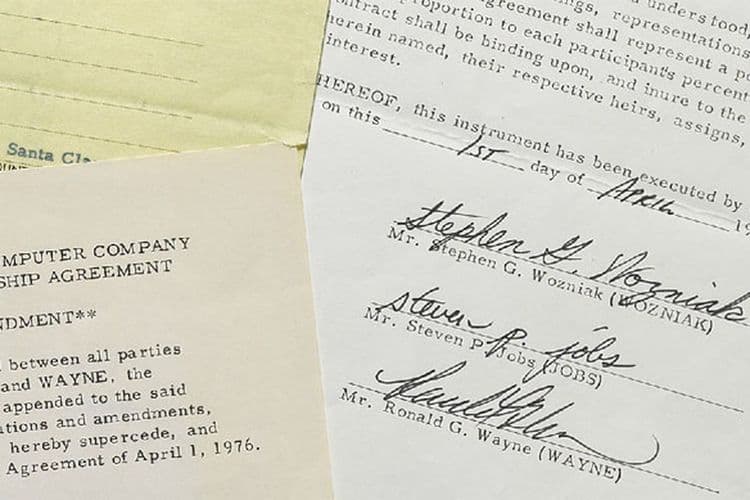 Santa
MPUTER COMPANY
SHIP AGREEMENT
NDMENT**
between all parties
and WAYNE, the
appended to the said
tions and amendments,
hereby supercede, and
Agreement of April 1, 1976.
understood,
representations
agreement shall represent a
proportion to each participant's
contract shall be binding upon, and inure to the
herein named, their respective heirs, assigns,
interest.
HEREOF, this instrument has been executed by
on this 1ST day of APRIL 19
Stephen G. Wozniak
Mr. Stephen G. Wozniak (WOZNIAK)
steven p. jobs
Mr. Steven P. Jobs (JOBS)
Mr. Ronald G. Wayne (WAYNE)